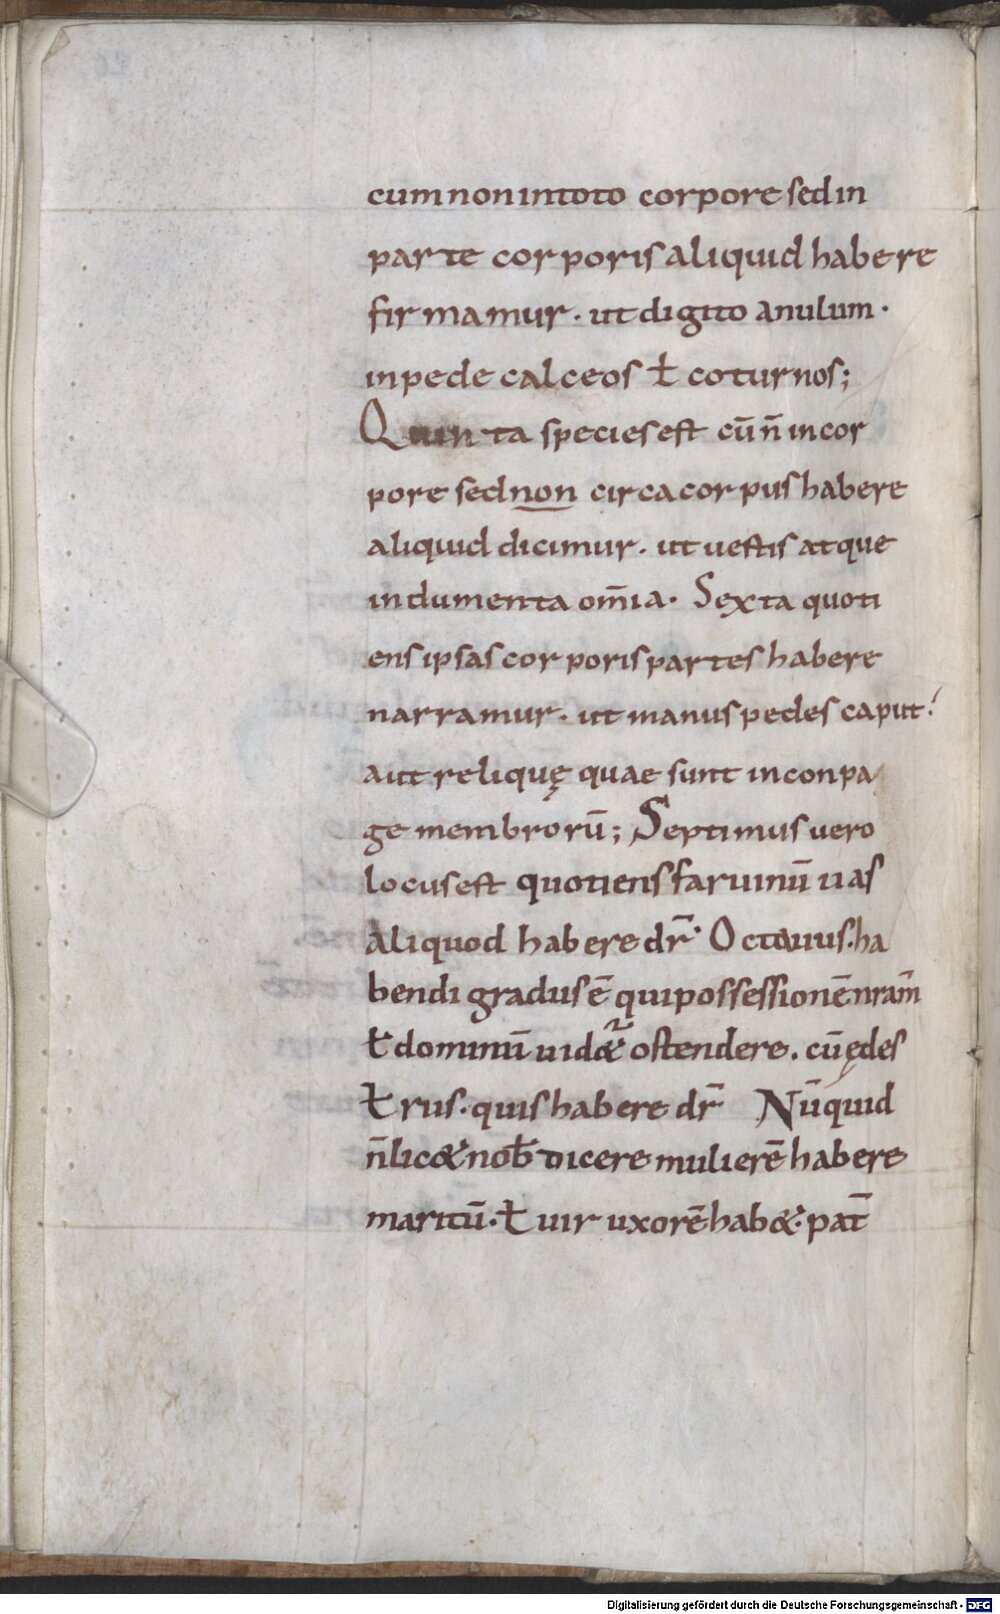 cum non in toto corpore sed in
parte corporis aliquid habere
firmamur · ut digito anulum ·
in pede calceos ƚ coturnos;
Quinta species est cū n̄ in cor
pore sed non circa corpus habere
aliquid dicimur · ut uestis atque
indumenta om̄ia · Sexta quoti
ens ipsas corporis partes habere
narramur · ut manus pedes caput ·
aut reliquę quae sunt in conpa
ge membrorū; Septimus uero
locus est quotiens far uinū uas
aliquod habere dr̄ · Octauus · ha
bendi gradus ē qui possessionē nram̄
ƚ dominū uid& ostendere . cū ędes
ƚ rus · quis habere dr̄ Nūquid
n̄ lic& nob̄ dicere mulierē habere
maritū · ƚ uir uxorē hab& · pat̄
Digitalisierung gefördert durch die Deutsche Forschungsgemeinschaft - DFG